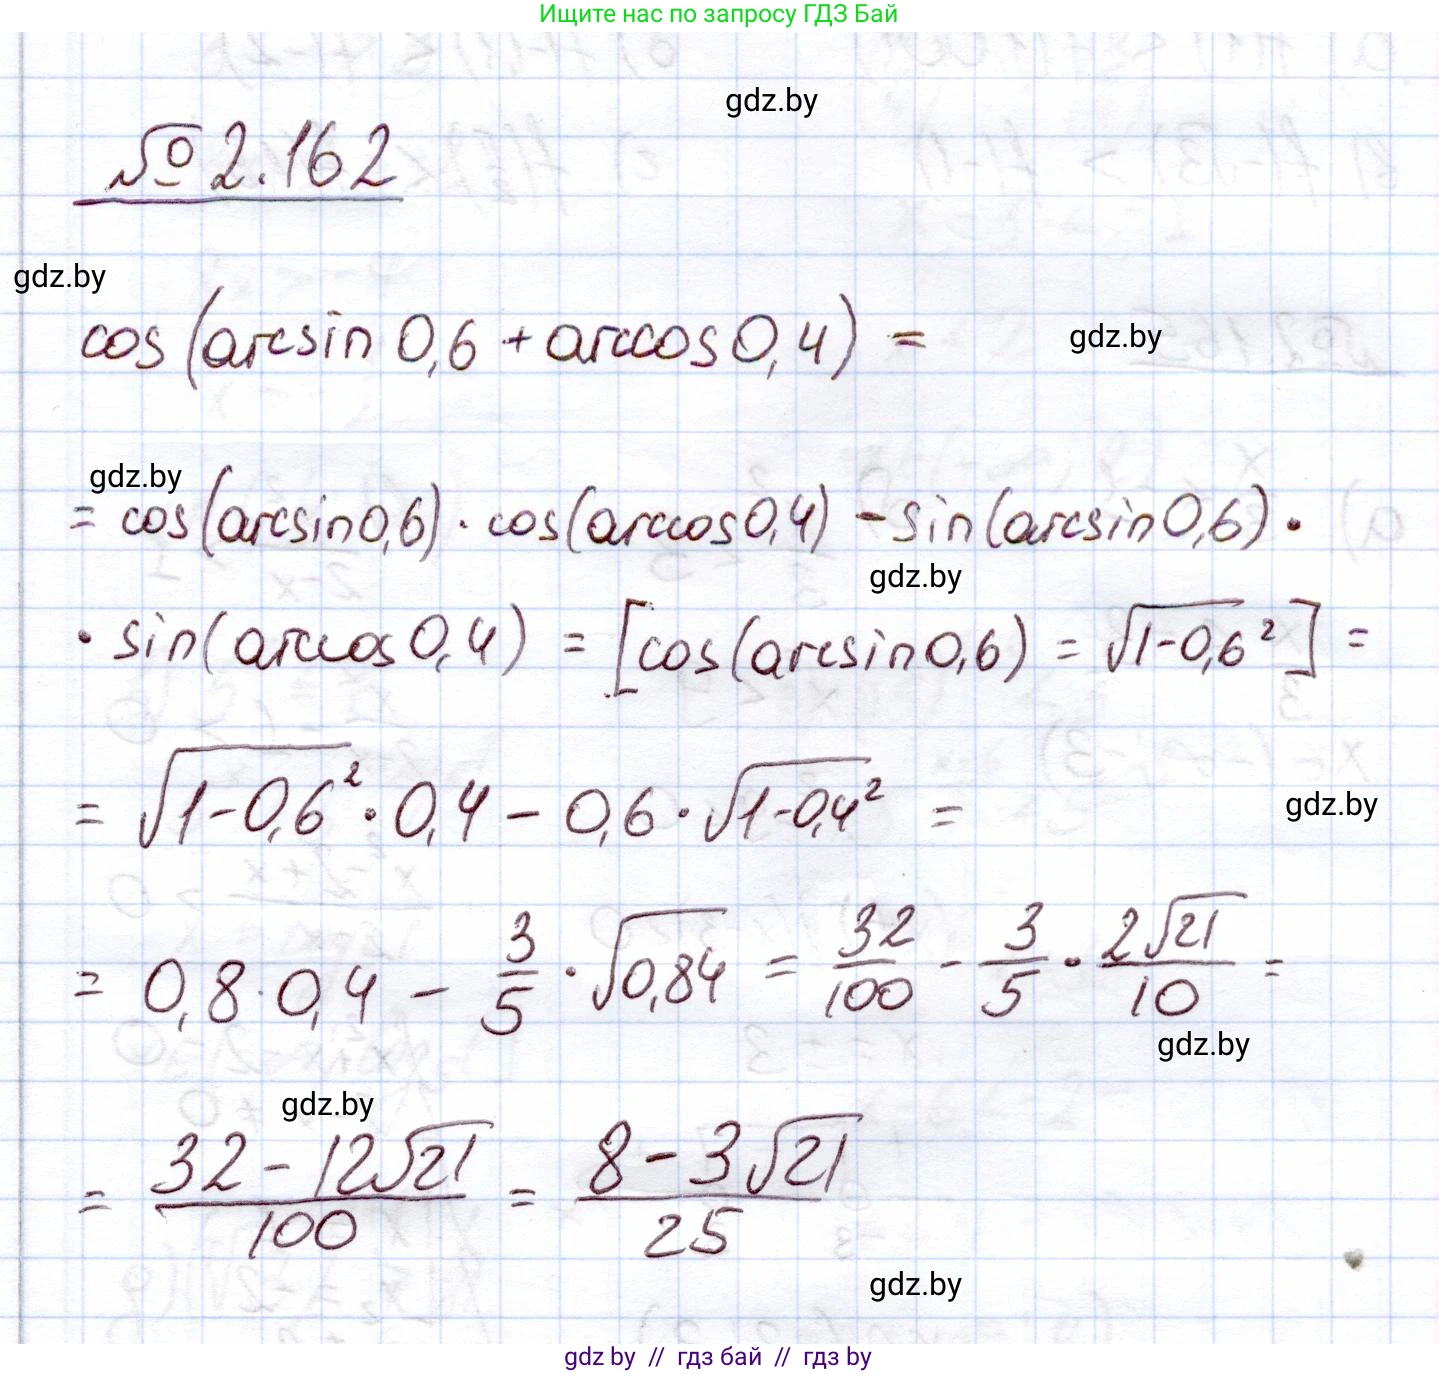 Ищите нас по запросу ГДЗ Бай
gdz.by
№ 2.162
gdz.by
cos(arcsin 0,6 + arccos 0,4) =
gdz.by
gdz.by
= cos(arcsin 0,6) · cos(arccos 0,4) - sin(arcsin 0,6) ·
gdz.by
· sin(arccos 0,4) = [cos(arcsin 0,6) = √1-0,6²] =
= √1-0,6² · 0,4 - 0,6 · √1-0,4² =
gdz.by
= 0,8 · 0,4 - 3/5 · √0,84 = 32/100 - 3/5 · 2√21/10 =
gdz.by
gdz.by
= 32-12√21/100 = 8-3√21/25
gdz.by
gdz by // гдз бай // гдз by